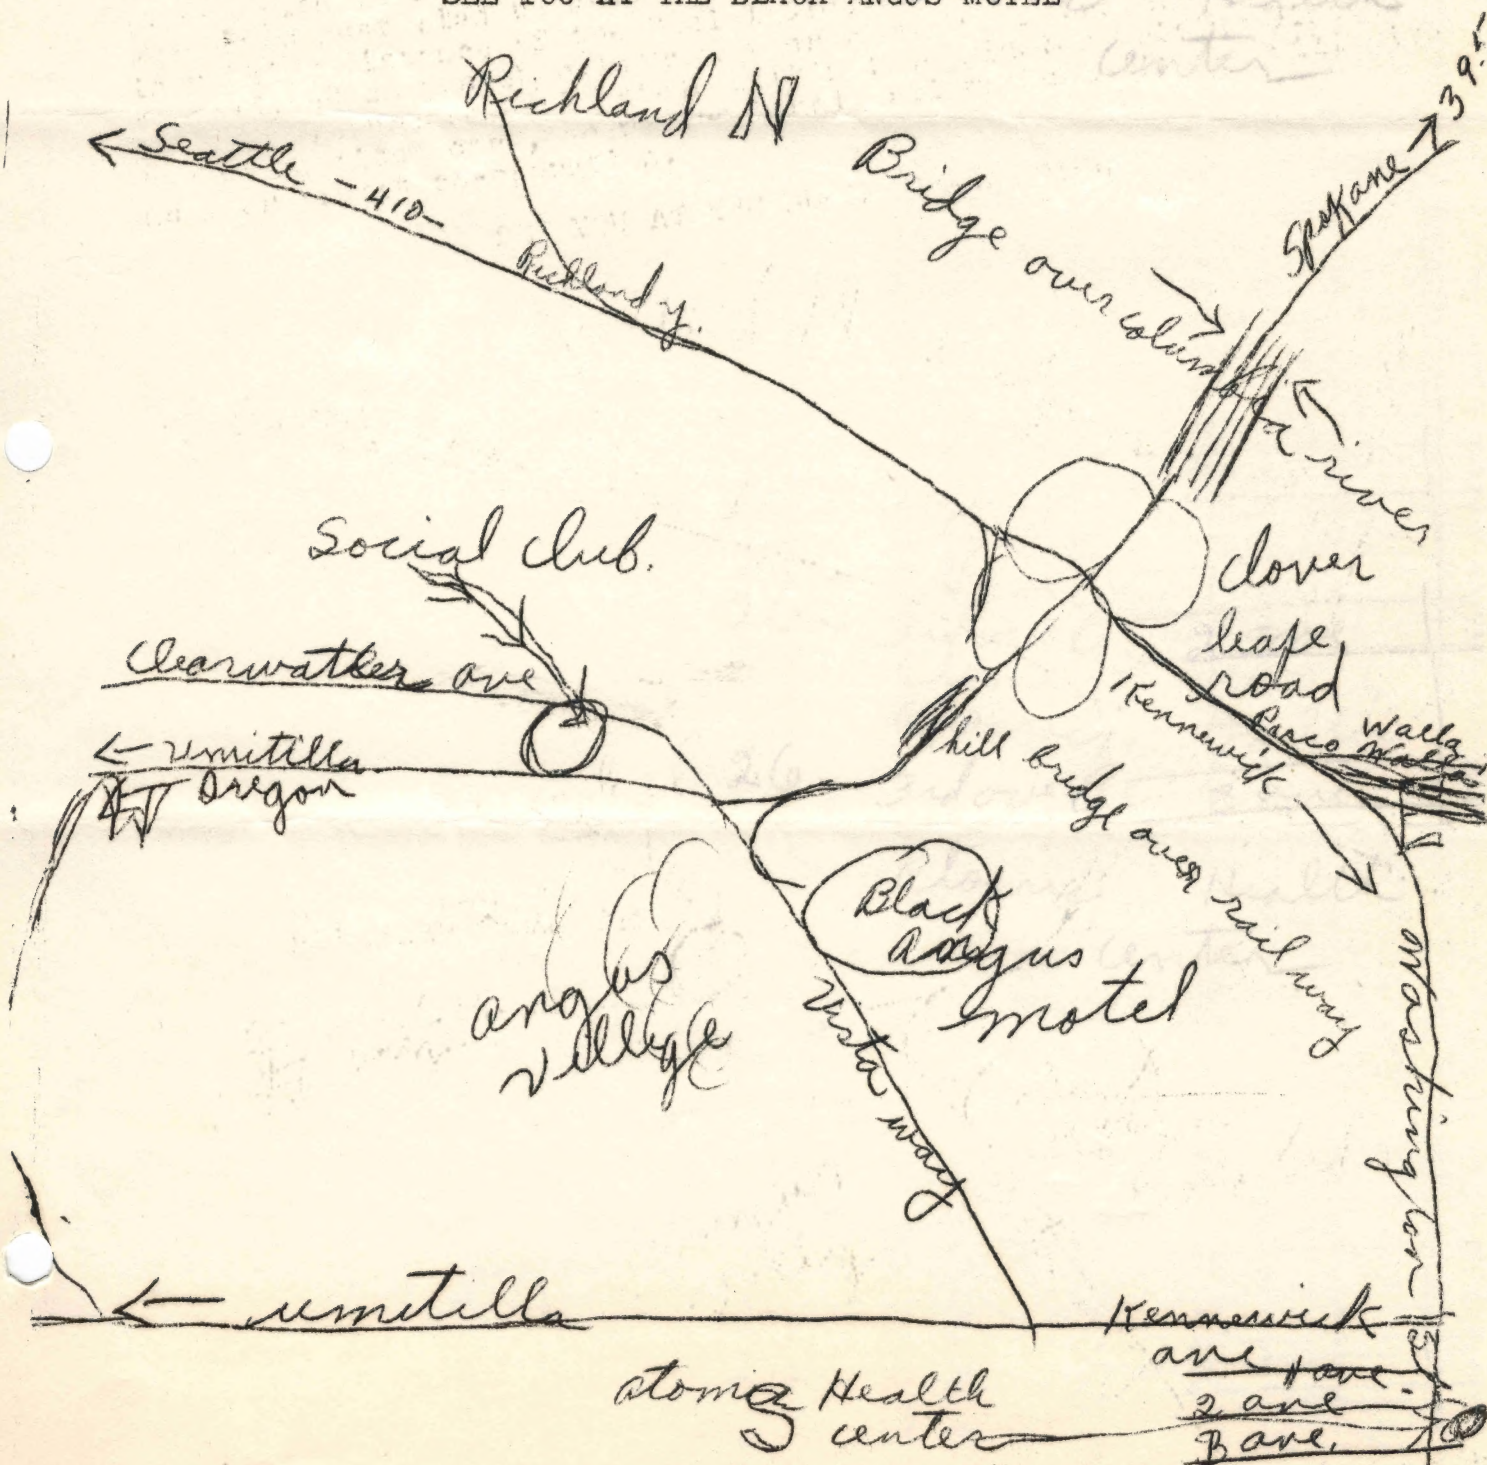 SEE YOU AT THE BLACK ANGUS MOTEL
center
Richland N
Seattle - 410 -
Richland y.
Bridge over columbia river
Spokane 395
Social Club.
clover
leafe
road
Clearwatter ave
umitilla
Oregon
hill bridge over rail way
Kennewick
Pasco
Walla
Walla
Black
Angus
motel
angus
village
Vista way
Washington
umitilla
Kennewick
ave
1 ave.
2 ave
3 ave.
atomic Health
center